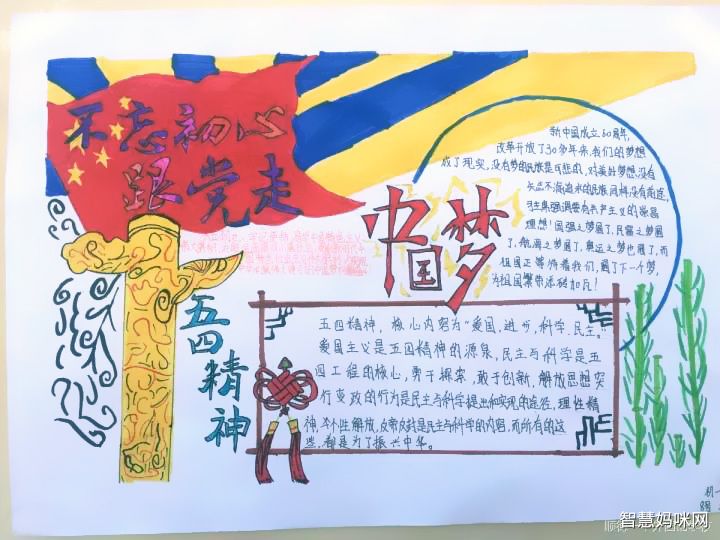 不忘初心
跟党走
中国梦
新中国成立60周年,
改革开放了30多年来,我们的梦想
成了现实,没有梦的民族是可悲的,对美好梦想没有
的民族同样没有前途,
理想!国强之梦圆了,民富之梦圆
了,航海之梦圆了,奥运之梦也圆了,而
祖国正等待着我们,圆了下一个梦,
为祖国繁荣添砖加瓦!
五四精神
五四精神,核心内容为“爱国,进步,科学,民主。”
爱国主义是五四精神的源泉,民主与科学是五
四工程的核心,勇于探索,敢于创新,解放思想实
行变政的行为是民主与科学提出和实现的途径,理性精
神,个性解放,反帝反封是民主与科学的内容,而所有的这
些,都是为了振兴中华。
初一
智慧妈咪网